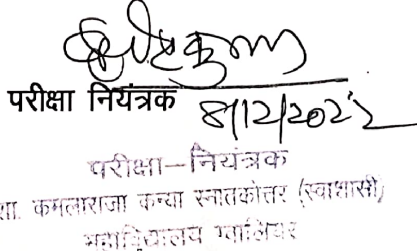 परीक्षा नियंत्रक 8/12/2022
परीक्षा-नियंत्रक
शा. कमलाराजा कन्या स्नातकोत्तर (स्वाशासी)
महाविद्यालय ग्वालियर